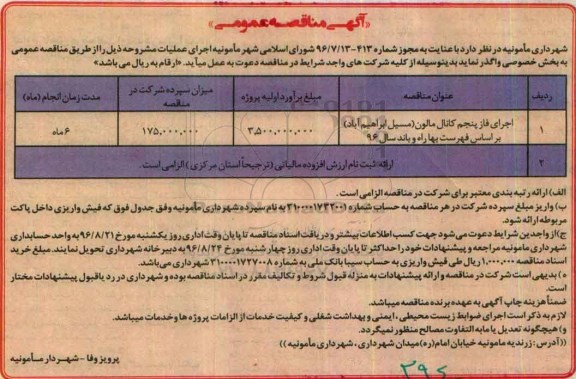 «آگهی مناقصه عمومی»
شهرداری مأمونیه در نظر دارد با عنایت به مجوز شماره ۴۱۳-۹۶/۷/۱۳ شورای اسلامی شهر مأمونیه اجرای عملیات مشروحه ذیل را از طریق مناقصه عمومی
به بخش خصوصی واگذار نماید بدینوسیله از کلیه شرکت های واجد شرایط در مناقصه دعوت به عمل میآید. «ارقام به ریال می باشد»
ردیف عنوان مناقصه مبلغ برآورد اولیه پروژه میزان سپرده شرکت در مناقصه مدت زمان انجام (ماه)
۱ اجرای فاز پنجم کانال مالون (مسیل ابراهیم آباد) ۳,۵۰۰,۰۰۰,۰۰۰ ۱۷۵,۰۰۰,۰۰۰ ۶ ماه
بر اساس فهرست بها راه و باند سال ۹۶
۲ ارائه ثبت نام ارزش افزوده مالیاتی (ترجیحاً استان مرکزی) الزامی است.
الف) ارائه رتبه بندی معتبر برای شرکت در مناقصه الزامی است.
ب) واریز مبلغ سپرده شرکت در هر مناقصه به حساب شماره ۲۱۰۰۰۰۱۷۳۲۰۰۱ به نام سپرده شهرداری مأمونیه وفق جدول فوق که فیش واریزی داخل پاکت
مربوطه ارائه شود.
ج) از واجدین شرایط دعوت می شود جهت کسب اطلاعات بیشتر و دریافت اسناد مناقصه تا پایان وقت اداری روز یکشنبه مورخ ۹۶/۸/۲۱ به واحد حسابداری
شهرداری مامونیه مراجعه و پیشنهادات خود را حداکثر تا پایان وقت اداری روز چهارشنبه مورخ ۹۶/۸/۲۴ به دبیرخانه شهرداری تحویل نمایند. مبلغ خرید
اسناد مناقصه ۱,۰۰۰,۰۰۰ ریال طی فیش واریزی به حساب سیبا بانک ملی به شماره ۳۱۰۰۰۰۱۷۲۷۰۰۸ شهرداری می باشد.
ه) بدیهی است شرکت در مناقصه و ارائه پیشنهادات به منزله قبول شروط و تکالیف مقرر در اسناد مناقصه بوده و شهرداری در رد یا قبول پیشنهادات مختار
است.
ضمناً هزینه چاپ آگهی به عهده برنده مناقصه میباشد.
لازم به ذکر است اجرای ضوابط زیست محیطی، ایمنی و بهداشت شغلی و کیفیت خدمات از الزامات پروژه ها و خدمات میباشد.
و) هیچگونه تعدیل یا مابه التفاوت مصالح منظور نمیگردد.
((آدرس: زرندیه مامونیه خیابان امام(ره) میدان شهرداری، شهرداری مأمونیه))
پرویز وفا - شهردار مأمونیه